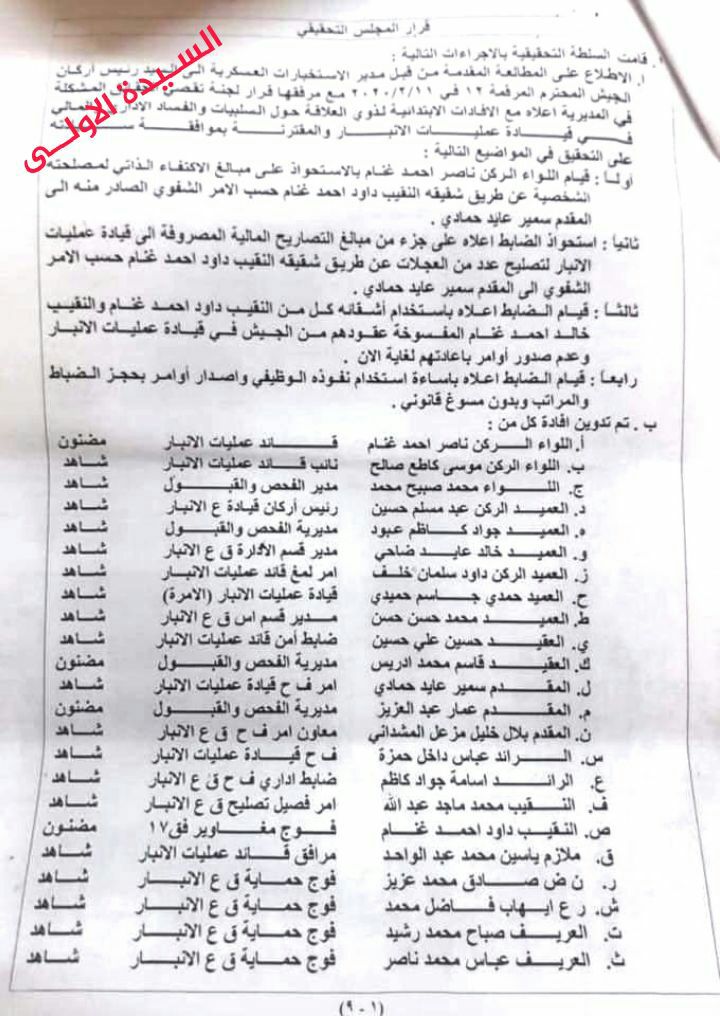 قرار المجلس التحقيقي
السيدة الاولى
قامت السلطة التحقيقية بالاجراءات التالية :
أ. الاطلاع على المطالعة المقدمة من قبل مدير الاستخبارات العسكرية الى السيد رئيس أركان
الجيش المحترم المرقمة ١٢ في ٢٠٢٠/٢/١١ مع مرفقها قرار لجنة تقصي المشكلة
في المديرية اعلاه مع الافادات الابتدائية لذوي العلاقة حول السلبيات والفساد الاداري المالي
في قيادة عمليات الانبار والمقترنة بموافقة
على التحقيق في المواضيع التالية :
أولاً : قيام اللواء الركن ناصر احمد غنام بالاستحواذ على مبالغ الاكتفاء الذاتي لمصلحته
الشخصية عن طريق شقيقه النقيب داود احمد غنام حسب الامر الشفوي الصادر منه الى
المقدم سمير عايد حمادي .
ثانياً : استحواذ الضابط اعلاه على جزء من مبالغ التصاريح المالية المصروفة الى قيادة عمليات
الانبار لتصليح عدد من العجلات عن طريق شقيقه النقيب داود احمد غنام حسب الامر
الشفوي الى المقدم سمير عايد حمادي .
ثالثاً : قيام الضابط اعلاه باستخدام أشقائه كل من النقيب داود احمد غنام والنقيب
خالد احمد غنام المفسوخة عقودهم من الجيش في قيادة عمليات الانبار
وعدم صدور أوامر باعادتهم لغاية الان .
رابعاً : قيام الضابط اعلاه باساءة استخدام نفوذه الوظيفي واصدار أوامر بحجز الضباط
والمراتب وبدون مسوغ قانوني .
ب . تم تدوين افادة كل من :
أ. اللواء الركن ناصر احمد غنام قائد عمليات الانبار مضنون
ب. اللواء الركن موسى كاطع صالح نائب قائد عمليات الانبار شاهد
ج. اللواء محمد صبيح محمد مدير الفحص والقبول شاهد
د. العميد الركن عبد مسلم حسين رئيس أركان قيادة ع الانبار شاهد
ه. العميد جواد كاظم عبود مديرية الفحص والقبول شاهد
و. العميد خالد عايد ضاحي مدير قسم الأدارة ق ع الانبار شاهد
ز. العميد الركن داود سلمان خلف امر لمغ قائد عمليات الانبار شاهد
ح. العميد حمدي جاسم حميدي قيادة عمليات الانبار (الامرة) شاهد
ط. العميد محمد حسن حسن مدير قسم اس ق ع الانبار شاهد
ي. العقيد حسين علي حسين ضابط أمن قائد عمليات الانبار شاهد
ك. العقيد قاسم محمد ادريس مديرية الفحص والقبول مضنون
ل. المقدم سمير عايد حمادي امر ف ح قيادة عمليات الانبار شاهد
م. المقدم عمار عبد العزيز مديرية الفحص والقبول مضنون
ن. المقدم بلال خليل مزعل المشداني معاون امر ف ح ق ع الانبار شاهد
س. الرائد عباس داخل حمزة ف ح قيادة عمليات الانبار شاهد
ع. الرائد اسامة جواد كاظم ضابط اداري ف ح ق ع الانبار شاهد
ف. النقيب محمد ماجد عبد الله امر فصيل تصليح ق ع الانبار شاهد
ص. النقيب داود احمد غنام فوج مغاوير فق١٧ مضنون
ق. ملازم ياسين محمد عبد الواحد مرافق قائد عمليات الانبار شاهد
ر. ن ض صادق محمد عزيز فوج حماية ق ع الانبار شاهد
ش. ر ع ايهاب فاضل محمد فوج حماية ق ع الانبار شاهد
ت. العريف صباح محمد رشيد فوج حماية ق ع الانبار شاهد
ث. العريف عباس محمد ناصر فوج حماية ق ع الانبار شاهد
(١ - ٩)